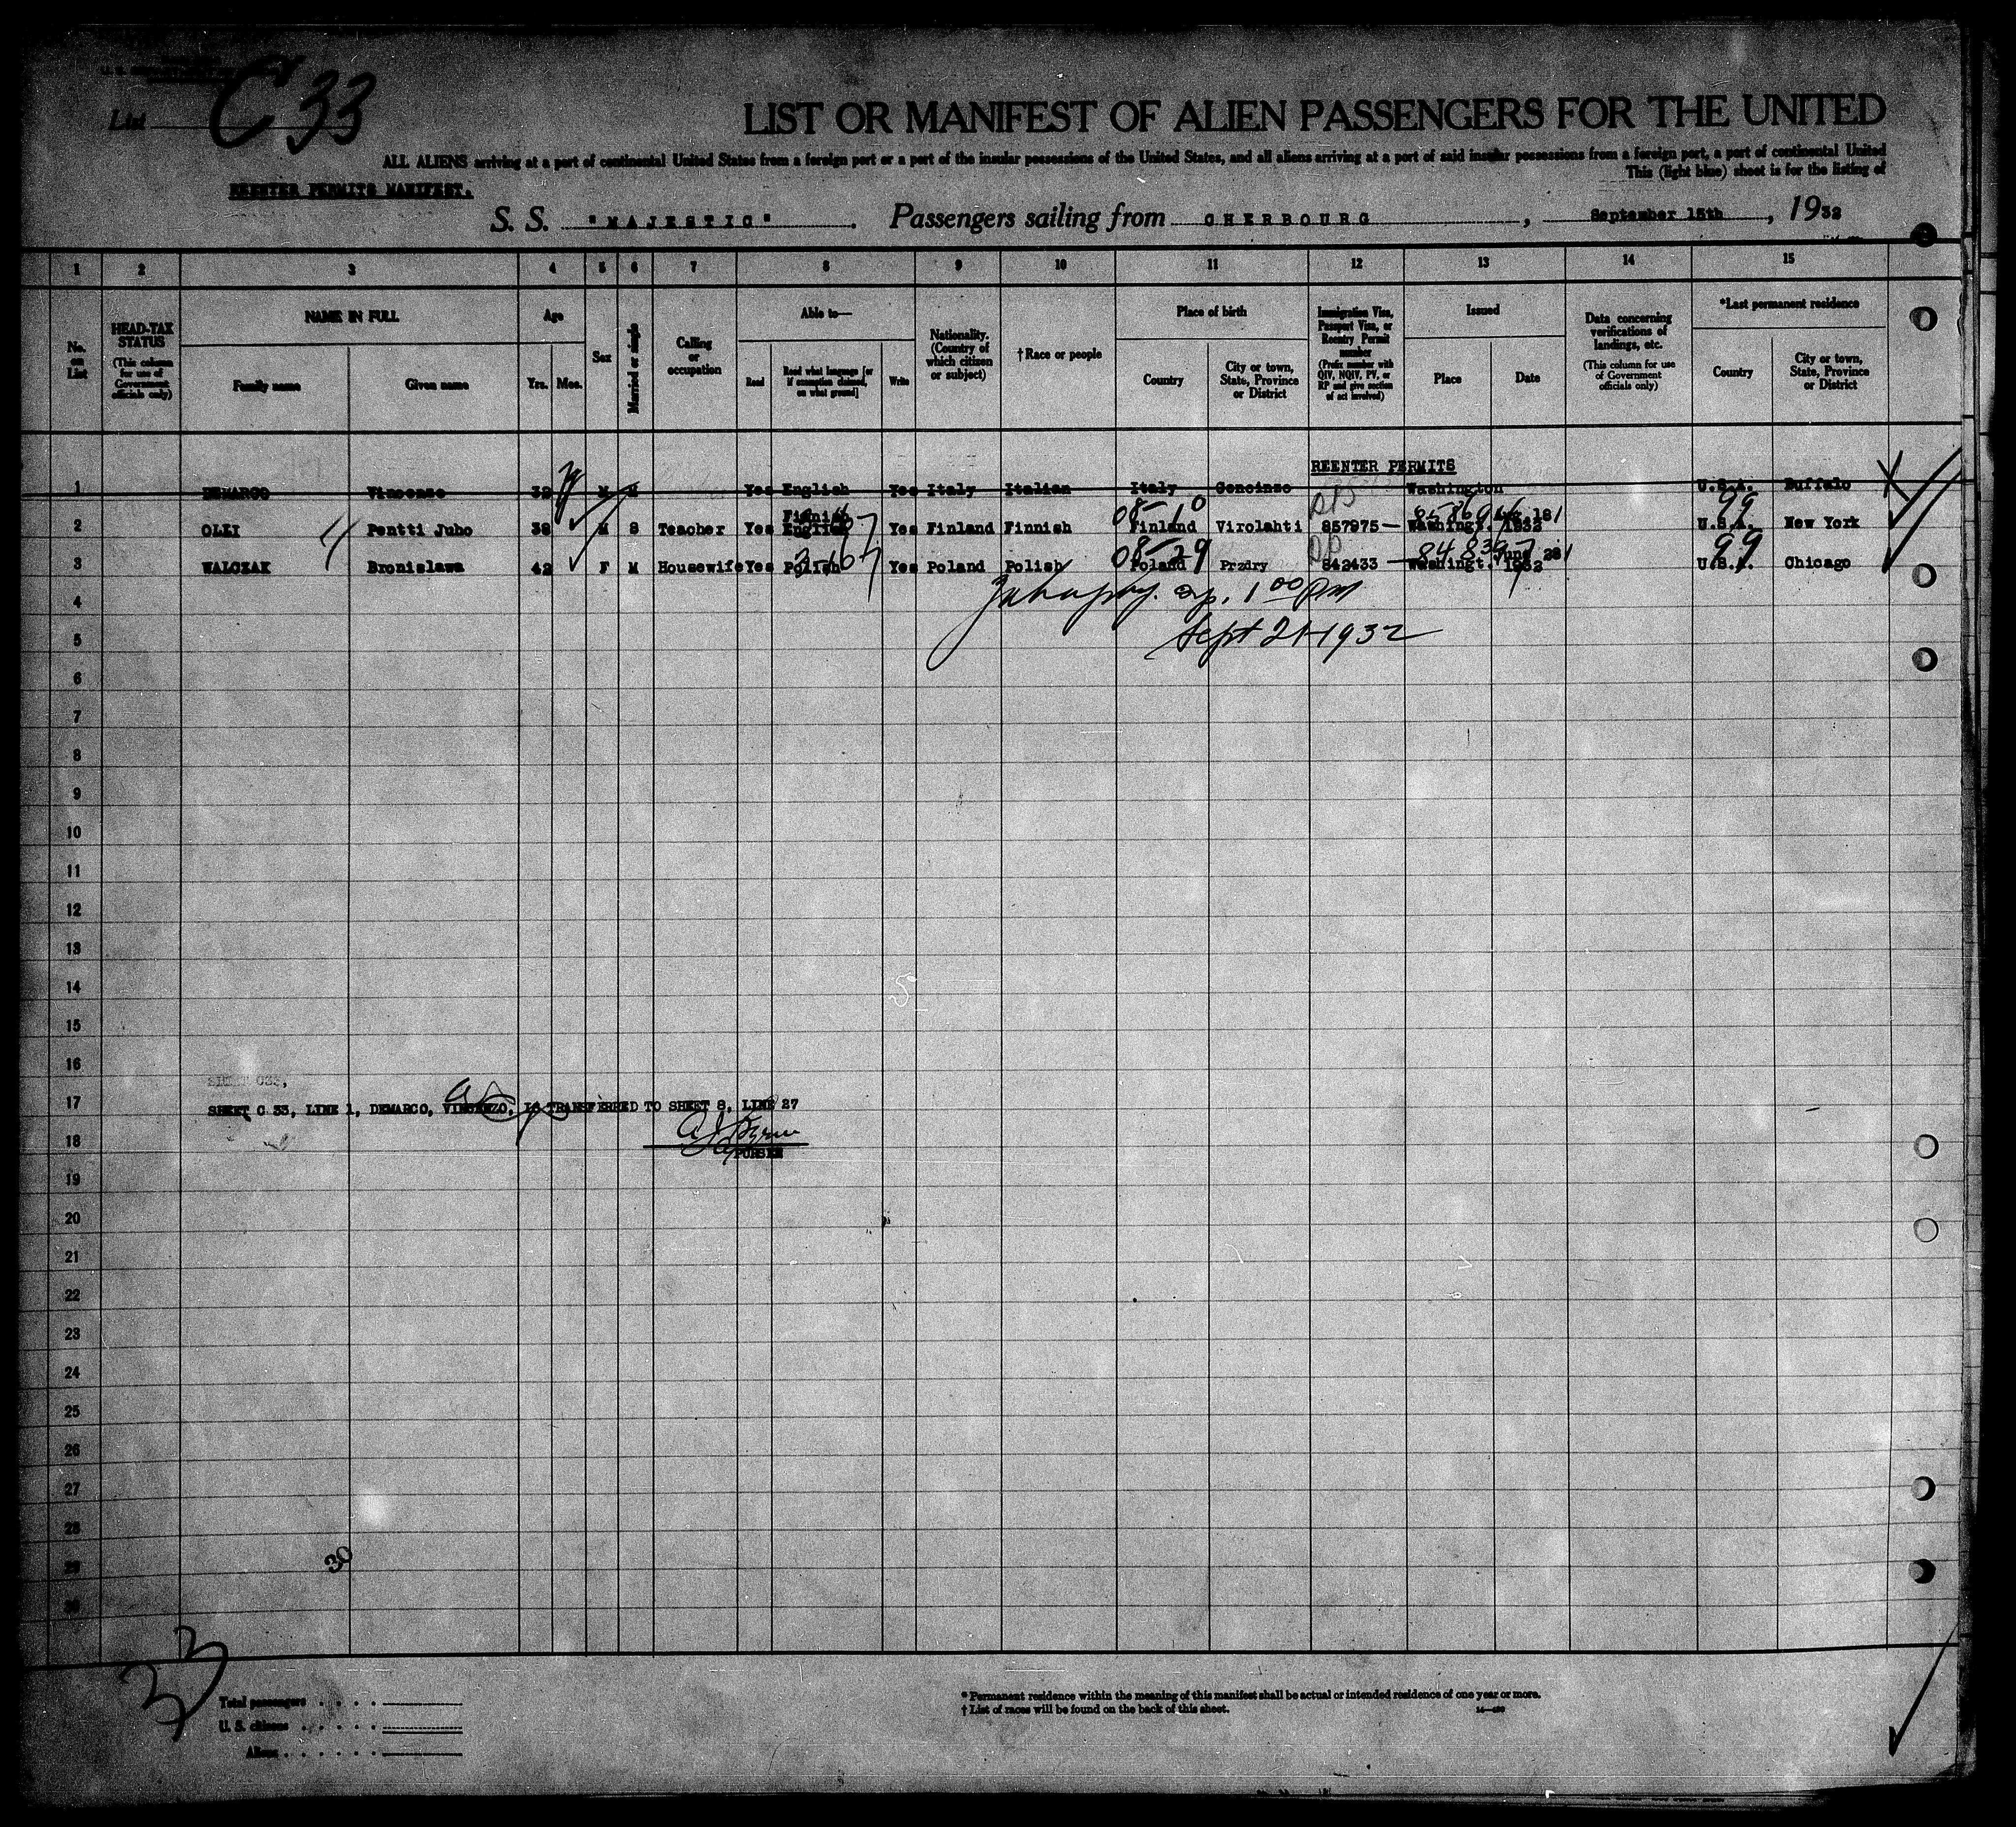 List C 33
LIST OR MANIFEST OF ALIEN PASSENGERS FOR THE UNITED
ALL ALIENS arriving at a port of continental United States from a foreign port or a port of the insular possessions of the United States, and all aliens arriving at a port of said insular possessions from a foreign port, a port of continental United
This (light blue) sheet is for the listing of
REENTER PERMITS MANIFEST.
S. S. "MAJESTIC". Passengers sailing from CHERBOURG, September 15th, 1932
1 2 3 4 5 6 7 8 9 10 11 12 13 14 15
No. on List
HEAD-TAX STATUS (This column for use of Government officials only)
NAME IN FULL
Family name Given name
Age
Yrs. Mos.
Sex
Married or single
Calling or occupation
Able to—
Read Read what language [or if exemption claimed, on what ground] Write
Nationality. (Country of which citizen or subject)
†Race or people
Place of birth
Country City or town, State, Province or District
Immigration Visa, Passport Visa, or Reentry Permit number (Prefix number with QIV, NQIV, PV, or RP and give section of act involved)
Issued
Place Date
Data concerning verifications of landings, etc. (This column for use of Government officials only)
*Last permanent residence
Country City or town, State, Province or District
REENTER PERMITS
1 DEMARCO Vincenzo 39 M M Yes English Yes Italy Italian Italy Cencinzo Washington U.S.A. Buffalo
2 OLLI Pentti Juho 38 M S Teacher Yes Finnish English Yes Finland Finnish Finland Virolahti 857975 Washingt. 1932 U.S.A. New York
3 WALCZAK Bronislawa 42 F M Housewife Yes Polish Yes Poland Polish Poland Przdry 842433 Washingt. June 28 1932 U.S.A. Chicago
4
1 00 PM
5
Sept 21-1932
6
7
8
9
10
11
12
13
14
15
16
SHEET C33,
17 SHEET C 33, LINE 1, DEMARCO, VINCENZO, IS TRANSFERRED TO SHEET 8, LINE 27
18
PURSER
19
20
21
22
23
24
25
26
27
28
29
30
30
33
Total passengers
U. S. citizens
Aliens
* Permanent residence within the meaning of this manifest shall be actual or intended residence of one year or more.
† List of races will be found on the back of this sheet.